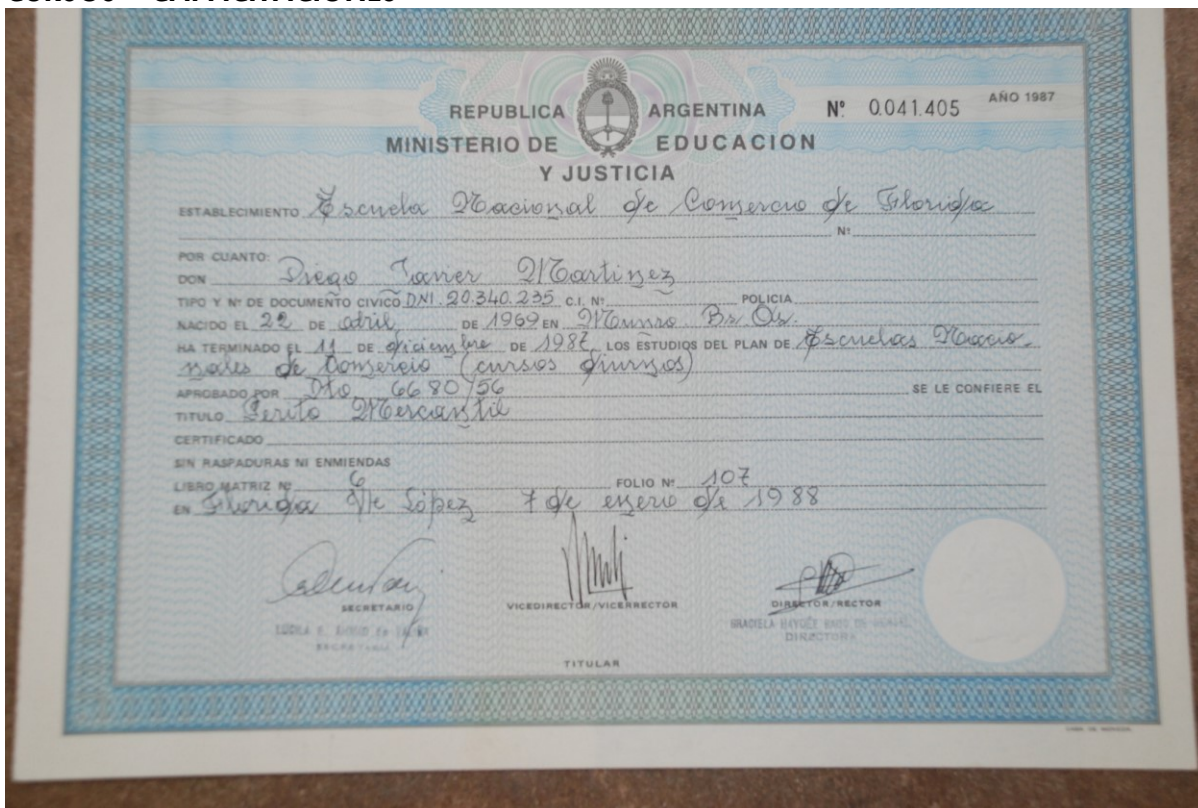 REPUBLICA ARGENTINA Nº 0.041.405 AÑO 1987
MINISTERIO DE EDUCACION
Y JUSTICIA
ESTABLECIMIENTO Escuela Nacional de Comercio de Florida
Nº
POR CUANTO:
DON Diego Javier Martinez
TIPO Y Nº DE DOCUMENTO CIVICO DNI. 20.340.235 C.I. Nº POLICIA
NACIDO EL 22 DE abril DE 1969 EN Munro Bs As.
HA TERMINADO EL 11 DE diciembre DE 1987 LOS ESTUDIOS DEL PLAN DE Escuelas Nacio-
nales de Comercio (cursos diurnos)
APROBADO POR Dto 6680/56 SE LE CONFIERE EL
TITULO Perito Mercantil
CERTIFICADO
SIN RASPADURAS NI ENMIENDAS
LIBRO MATRIZ Nº 6 FOLIO Nº 107
EN Florida Vte López 7 de enero de 1988
SECRETARIO VICEDIRECTOR/VICERRECTOR DIRECTOR/RECTOR
SECRETARIA GRACIELA HAYDÉE
DIRECTORA
TITULAR